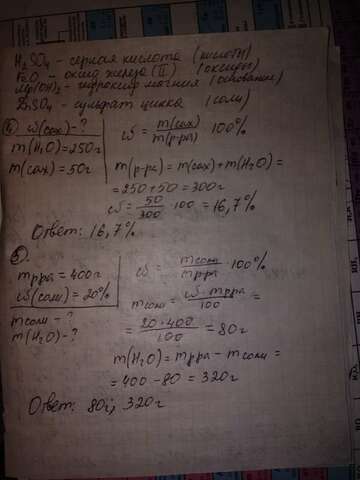 H₂SO₄ - серная кислота (кислоты)
FeO - оксид железа (II) (оксиды)
Mg(OH)₂ - гидроксид магния (основание)
ZnSO₄ - сульфат цинка (соли)
④ ω(сах) - ?
m(H₂O) = 250г
m(сах) = 50г
ω = m(сах) / m(р-ра) · 100%
m(р-ра) = m(сах) + m(H₂O) =
= 250 + 50 = 300г
ω = 50/300 · 100 = 16,7%
Ответ: 16,7%
⑤.
mрра = 400г
ω(соли) = 20%
mсоли - ?
m(H₂O) - ?
ω = mсоли / mрра · 100%
mсоли = ω · mрра / 100 =
= 20 · 400 / 100 = 80г
m(H₂O) = mрра - mсоли =
= 400 - 80 = 320г
Ответ: 80г; 320г